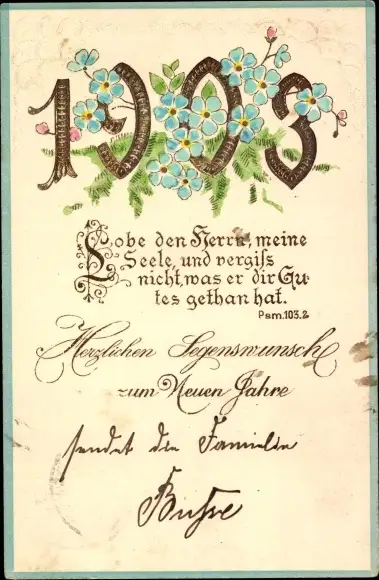 1903
Lobe den Herrn, meine
Seele, und vergiss
nicht, was er dir Gu-
tes gethan hat.
Psm.103.2
Herzlichen Segenswunsch
zum Neuen Jahre
sendet die Familie